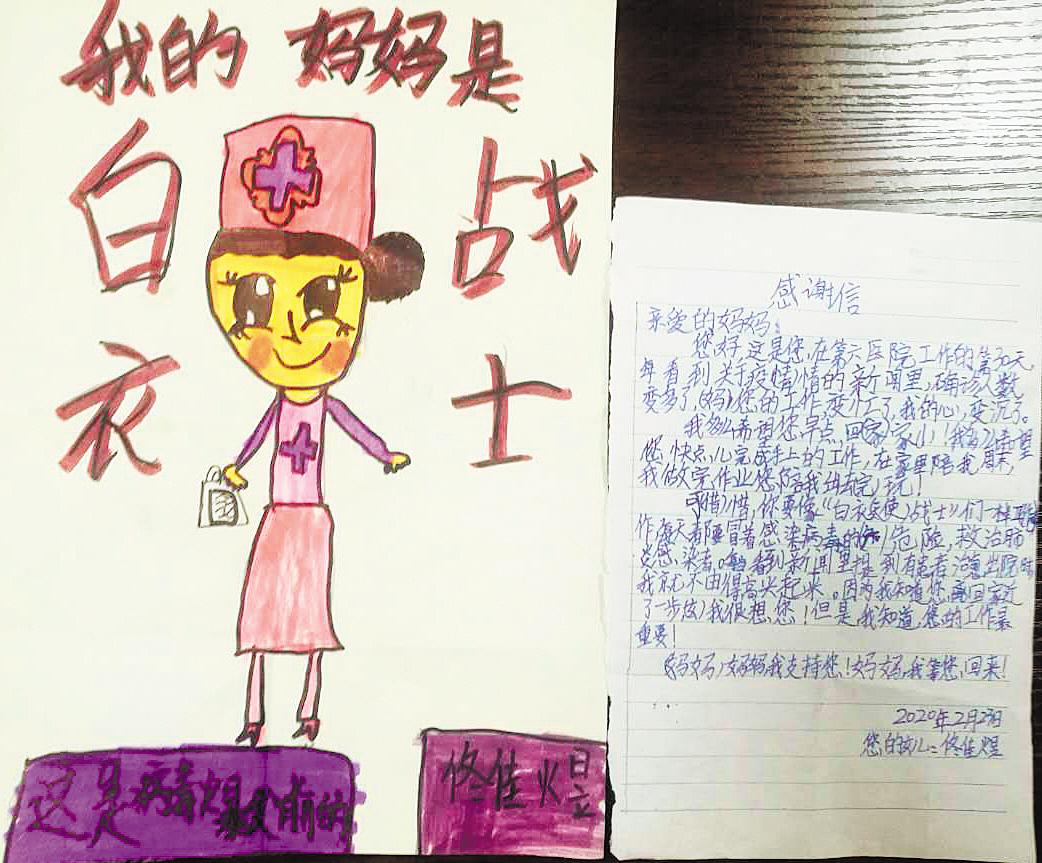 我的 妈妈是
白
衣
战
士
这是病毒爆发前的
佟佳煜
感谢信
亲爱的妈妈：
您好,这是您,在第六医院工作的第30天
每看到关于疫情的新闻里,确诊人数
变多了 您的工作变忙了,我的心,变沉了。
我多么希望您早点,回家！我希望
您,快点儿完成手上的工作,在家里陪我周末,
我做完作业您陪我玩！
可惜,你要像《白衣天使》战士们一样
作每天都要冒着感染病毒的危险,救治肺
炎感染者。看到新闻里提到有患者治愈出院时
我就不由得高兴起来。因为我知道您,离回家近
了一步我很想,您！但是,我知道,您的工作最
重要！
妈妈我支持您！妈妈,我等您,回来！
2020年2月23日
您的女儿：佟佳煜